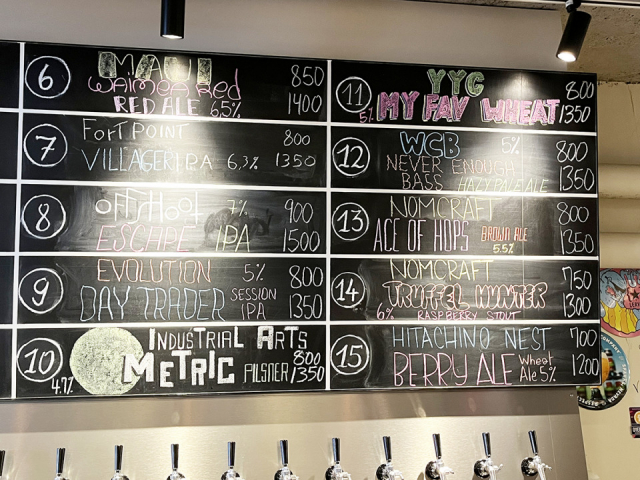 6
MAUI
WAIMEA Red
RED ALE 6.5%
850
1400
7
FORT POINT
VILLAGER IPA 6.3%
800
1350
8
OFFSHOOT 7%
ESCAPE IPA
900
1500
9
EVOLUTION 5%
DAY TRADER SESSION IPA
800
1350
10
INDUSTRIAL ARTS
METRIC PILSNER
4.7%
800
1350
11
YYG
5% MY FAV WHEAT
800
1350
12
WCB 5%
NEVER ENOUGH
BASS HAZY PALE ALE
800
1350
13
NOMCRAFT
ACE OF HOPS BROWN ALE
5.5%
800
1350
14
NOMCRAFT
TRUFFEL HUNTER
6% RASPBERRY STOUT
750
1300
15
HITACHINO NEST
BERRY ALE Wheat
Ale 5%
700
1200